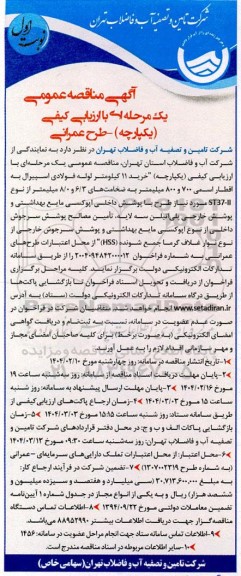 شرکت تامین و تصفیه آب و فاضلاب تهران
نوبت اول
آگهی مناقصه عمومی
یک مرحله ای با ارزیابی کیفی
(یکپارچه) -طرح عمرانی
شرکت تامین و تصفیه آب و فاضلاب تهران در نظر دارد به نمایندگی از
شرکت آب و فاضلاب استان تهران، مناقصه عمومی یک مرحله‌ای با
ارزیابی کیفی (یکپارچه) "خرید ۱۱ کیلومتر لوله فولادی اسپیرال به
اقطار اسمی ۷۰۰ و ۸۰۰ میلیمتر به ضخامت‌های ۶/۳ و ۸/۰ میلیمتر از نوع
ST37-II مورد نیاز طرح با پوشش داخلی اپوکسی مایع بهداشتی و
پوشش خارجی پلی‌اتیلن سه لایه، تأمین مصالح پوشش سرجوش
داخلی از نوع اپوکسی مایع بهداشتی و پوشش سرجوش خارجی از
نوع نوار غلاف گرما جمع شونده (HSS)" از محل اعتبارات طرح‌های
عمرانی را به شماره فراخوان از طریق سامانه
تدارکات الکترونیکی دولت برگزار نماید. کلیه مراحل برگزاری
فراخوان از دریافت و تحویل اسناد فراخوان تا بازگشایی پاکت‌ها
از طریق درگاه سامانه تدارکات الکترونیکی دولت (ستاد) به آدرس
www.setadiran.ir انجام خواهد شد. متقاضیان شرکت در فراخوان در
صورت عدم عضویت در سامانه، نسبت به ثبت‌نام و دریافت گواهی
امضای الکترونیکی (به صورت برخط) برای کلیه صاحبان امضای مجاز
و مهر سازمانی اقدام لازم را به عمل آورند.
۱-تاریخ انتشار مناقصه در سامانه: روز چهارشنبه مورخ ۱۴۰۴/۰۲/۱۰
۲-پایان مهلت دریافت اسناد مناقصه از سامانه: روز سه‌شنبه ساعت ۱۹
مورخ ۱۴۰۴/۰۲/۱۶ ۳-پایان مهلت ارسال پیشنهاد به سامانه: روز شنبه
ساعت ۱۵ مورخ ۱۴۰۴/۰۳/۰۳ ۴-زمان ارجاع پاکت‌های ارزیابی کیفی از
طریق سامانه ستاد: روز شنبه ساعت ۱۵:۱۵ مورخ ۱۴۰۴/۰۳/۰۳ ۵-زمان
بازگشایی پاکات الف و ب و ج: در محل دفتر قراردادهای شرکت تامین و
تصفیه آب و فاضلاب تهران: روز سه‌شنبه ساعت ۰۹:۳۰ مورخ ۱۴۰۴/۰۳/۱۳
۶-محل اعتبار: از محل اعتبارات تملک دارایی‌های سرمایه‌ای - عمرانی
(به شماره طرح ) ۷-تضمین شرکت در فرآیند ارجاع کار:
به مبلغ ۳۰.۷۱۳.۶۰۰.۰۰۰ (سی میلیارد و هفتصد و سیزده میلیون و
ششصد هزار) ریال و به یکی از انواع مجاز در جدول شماره ۱ آیین‌نامه
تضمین معاملات دولتی مورخ ۱۳۹۴/۰۹/۲۲ ۸-اطلاعات تماس دستگاه
مناقصه‌گزار جهت دریافت اطلاعات بیشتر می‌باشد.
۹-اطلاعات تماس سامانه ستاد جهت انجام مراحل عضویت در سامانه: ۱۴۵۶
۱۰-سایر اطلاعات مربوطه در اسناد مناقصه مندرج است.
شرکت تامین و تصفیه آب و فاضلاب تهران (سهامی خاص)